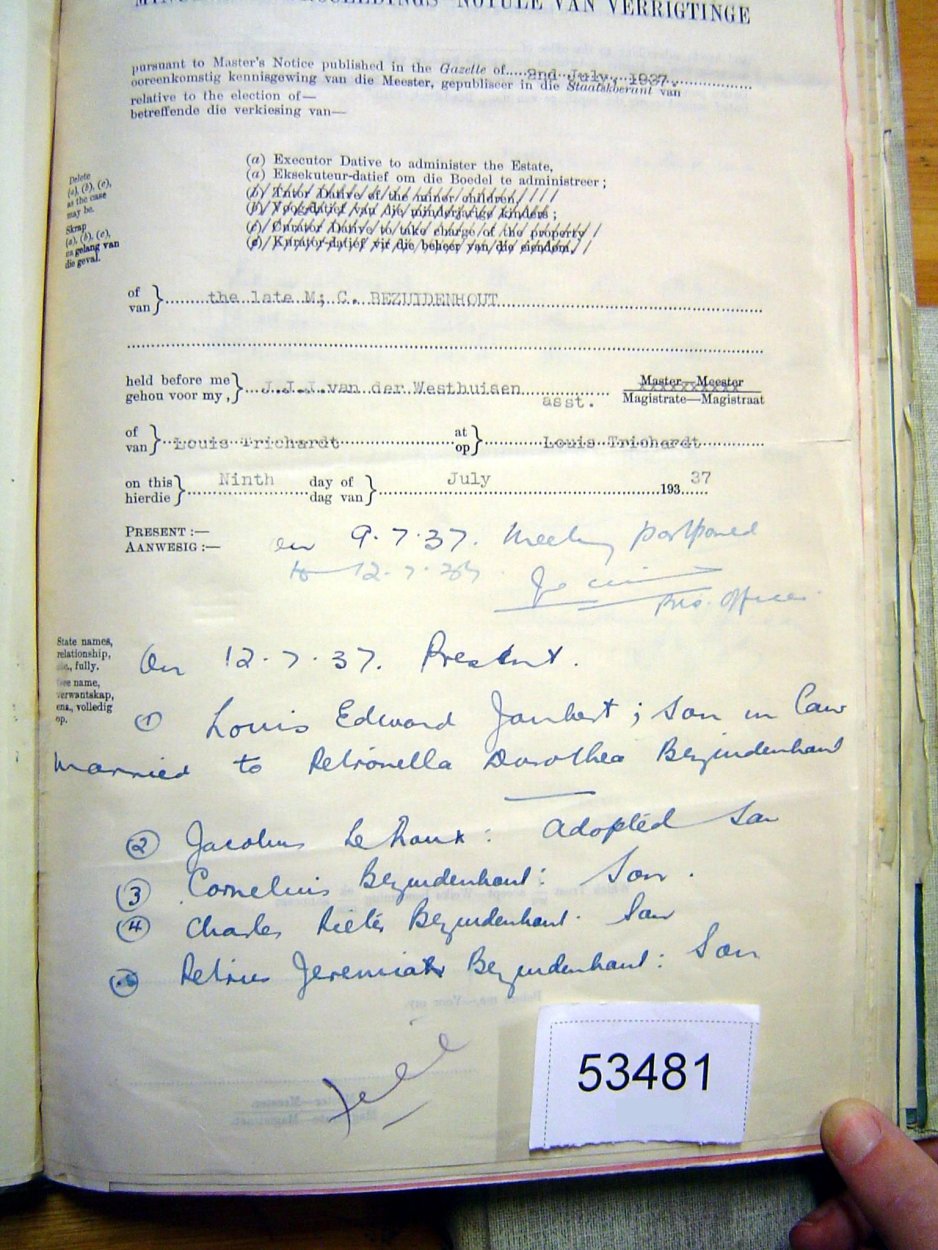 PROCEEDINGS—NOTULE VAN VERRIGTINGE
pursuant to Master's Notice published in the Gazette of.....2nd July, 1937.
ooreenkomstig kennisgewing van die Meester, gepubliseer in die Staatskoerant van
relative to the election of—
betreffende die verkiesing van—
Delete
(a), (b), (c),
as the case
may be.
Skrap
(a), (b), (c),
na gelang van
die geval.
(a) Executor Dative to administer the Estate,
(a) Eksekuteur-datief om die Boedel te administreer;
(b) Tutor Dative of the minor children,
(b) Voogdatief van die minderjarige kinders;
(c) Curator Dative to take charge of the property
(c) Kurator-datief vir die beheer van die eiendom,
of
van } the late M; C. BEZUIDENHOUT
held before me
gehou voor my, } J.J.I.van der Westhuisen asst.
Master—Meester
Magistrate—Magistraat
of
van } Louis Trichardt at
op } Louis Trichardt
on this
hierdie } Ninth day of
dag van } July 193 37
PRESENT :—
AANWESIG :—
on 9.7.37. Meeting postponed
to 12.7.37.
Pres. Officer
State names,
relationship,
etc., fully.
Gee name,
verwantskap,
ens., volledig
op.
On 12.7.37. Present.
① Louis Edward Joubert; son in law
married to Petronella Dorothea Bezuidenhout
② Jacobus Le Roux: adopted son
③ Cornelius Bezuidenhout: Son.
④ Charles Pieter Bezuidenhout. Son
⑤ Petrus Jeremiah Bezuidenhout: Son
53481